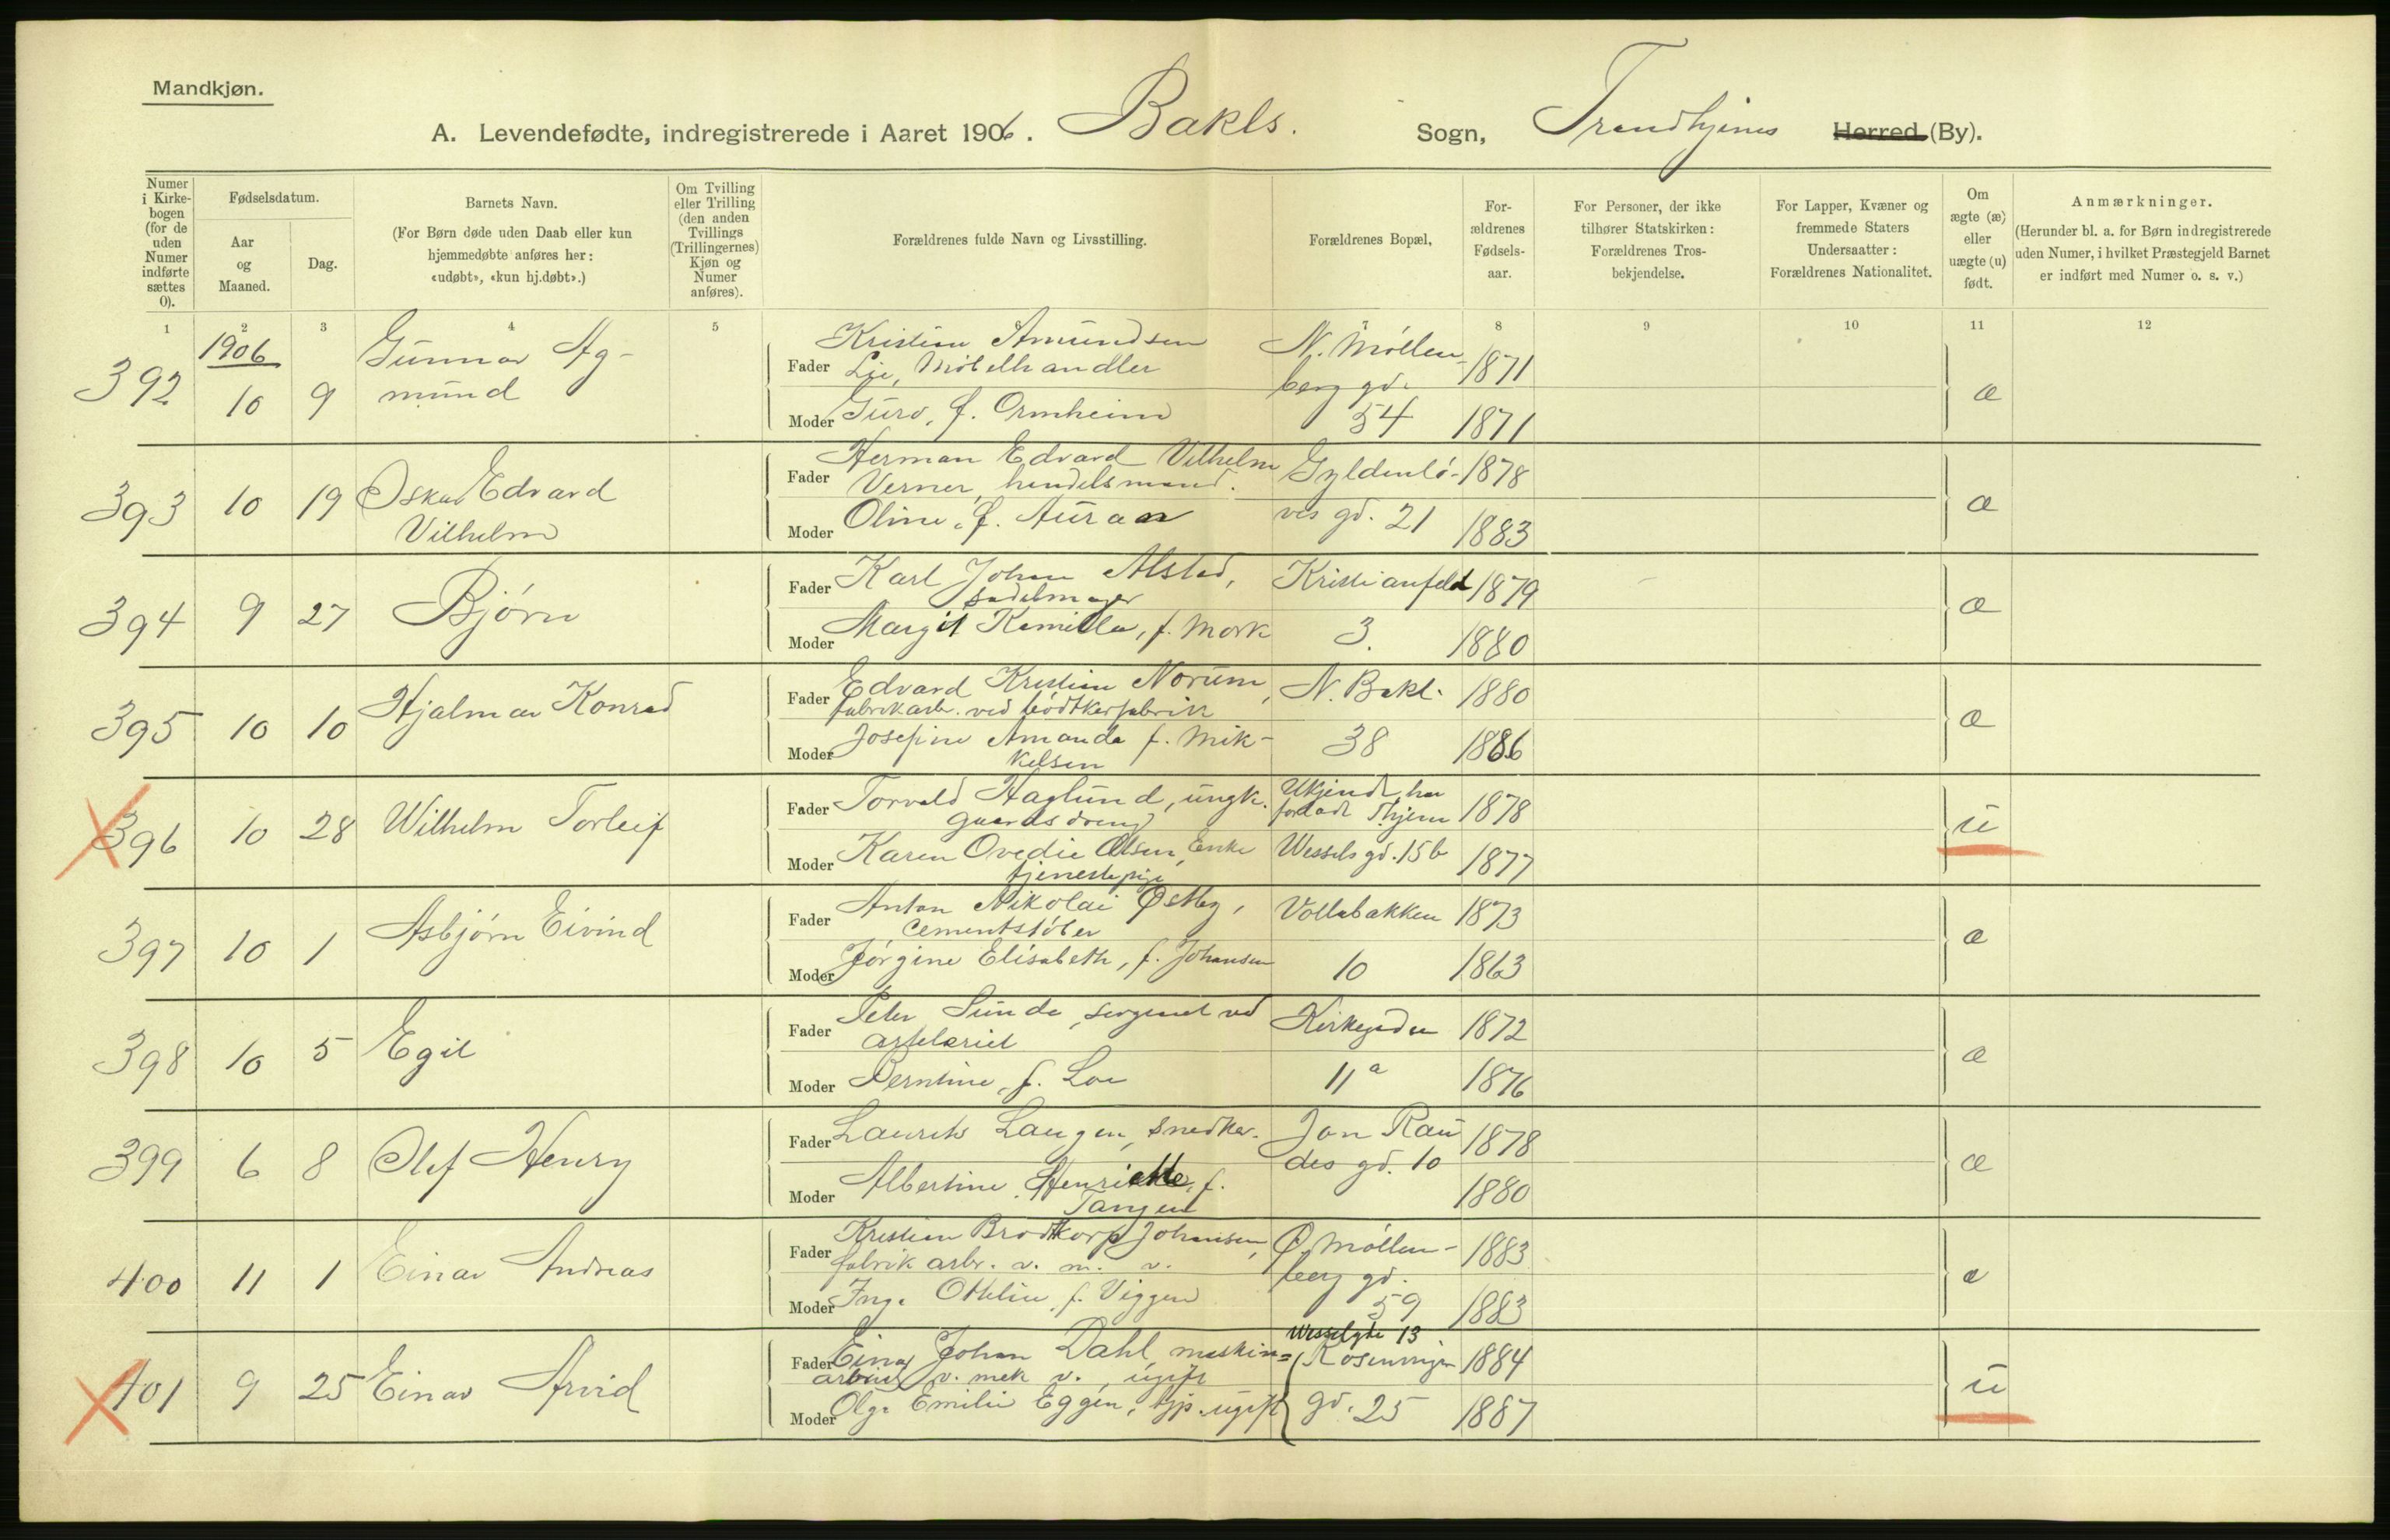 Mandkjøn.
A. Levendefødte, indregistrerede i Aaret 1906. Bakls. Sogn, Trondhjems Herred (By).
Numer i Kirke-bogen (for de uden Numer indførte sættes 0).
Fødselsdatum.
Aar og Maaned.
Dag.
Barnets Navn.
(For Børn døde uden Daab eller kun hjemmedøbte anføres her: «udøbt», «kun hj.døbt».)
Om Tvilling eller Trilling (den anden Tvillings (Trillingernes) Kjøn og Numer anføres).
Forældrenes fulde Navn og Livsstilling.
Forældrenes Bopæl,
For-ældrenes Fødsels-aar.
For Personer, der ikke tilhører Statskirken: Forældrenes Tros-bekjendelse.
For Lapper, Kvæner og fremmede Staters Undersaatter: Forældrenes Nationalitet.
Om ægte (æ) eller uægte (u) født.
Anmærkninger.
(Herunder bl. a. for Børn indregistrerede uden Numer, i hvilket Præstegjeld Barnet er indført med Numer o. s. v.)
1 2 3 4 5 7 8 9 10 11 12
1906
392 10 9 Gunnar Ag-
mund
Fader Kristian Amundsen
Lie, Møbelhandler
N. Møllen-
berg gd.
54
1871
Moder Guro, f. Ormheim 1871
æ
393 10 19 Oskar Edvard
Vilhelm
Fader Herman Edvard Vilhelm
Verner, handelsmand.
Gyldenlø-
ves gd. 21
1878
Moder Oline, f. Auran 1883
æ
394 9 27 Bjørn
Fader Karl Johan Alstad,
sadelmager
Kristianfeld
3.
1879
Moder Margit Kamilla, f. Mork 1880
æ
395 10 10 Hjalmar Konrad
Fader Edvard Kristian Norum,
fabrikarb. ved bødtkerfabrik
N. Bakl.
38
1880
Moder Josefine Amanda f. Mik-
kelsen
1886
æ
396 10 28 Wilhelm Torleif
Fader Torvald Haglund, ungk.
gaardsdreng
Ukjendt, har
forladt Thjem
1878
Moder Karen Ovedie Olsen, Enke
tjenestepige
Wessels gd. 15b
1877
u
397 10 1 Asbjørn Eivind
Fader Anton Nikolai Østby,
Cementstøber
Vollabakken
10
1873
Moder Jørgine Elisabeth, f. Johansen 1863
æ
398 10 5 Egil
Fader Peter Sunde, sergeant ved
artilleriet
Kirkegaden
11a
1872
Moder Berntine, f. Loe 1876
æ
399 6 8 Olaf Henry
Fader Laurits Langen, snedker.
Jon Rau
des gd. 10
1878
Moder Albertine Henriette, f.
Tangen
1880
æ
400 11 1 Einar Andreas
Fader Kristian Brodtkorp Johansen,
fabrikarbr. v. m. v.
Ø. Møllen-
berg gd.
59
1883
Moder Inga Otteline f. Viggen 1883
æ
401 9 25 Einar Arvid
Fader Einar Johan Dahl, maskin=
arbeider v. mek v., ugift
Wesselgte 13
Rosenvinges
gd. 25
1884
Moder Olga Emilie Eggen, tjp. ugift 1887
u